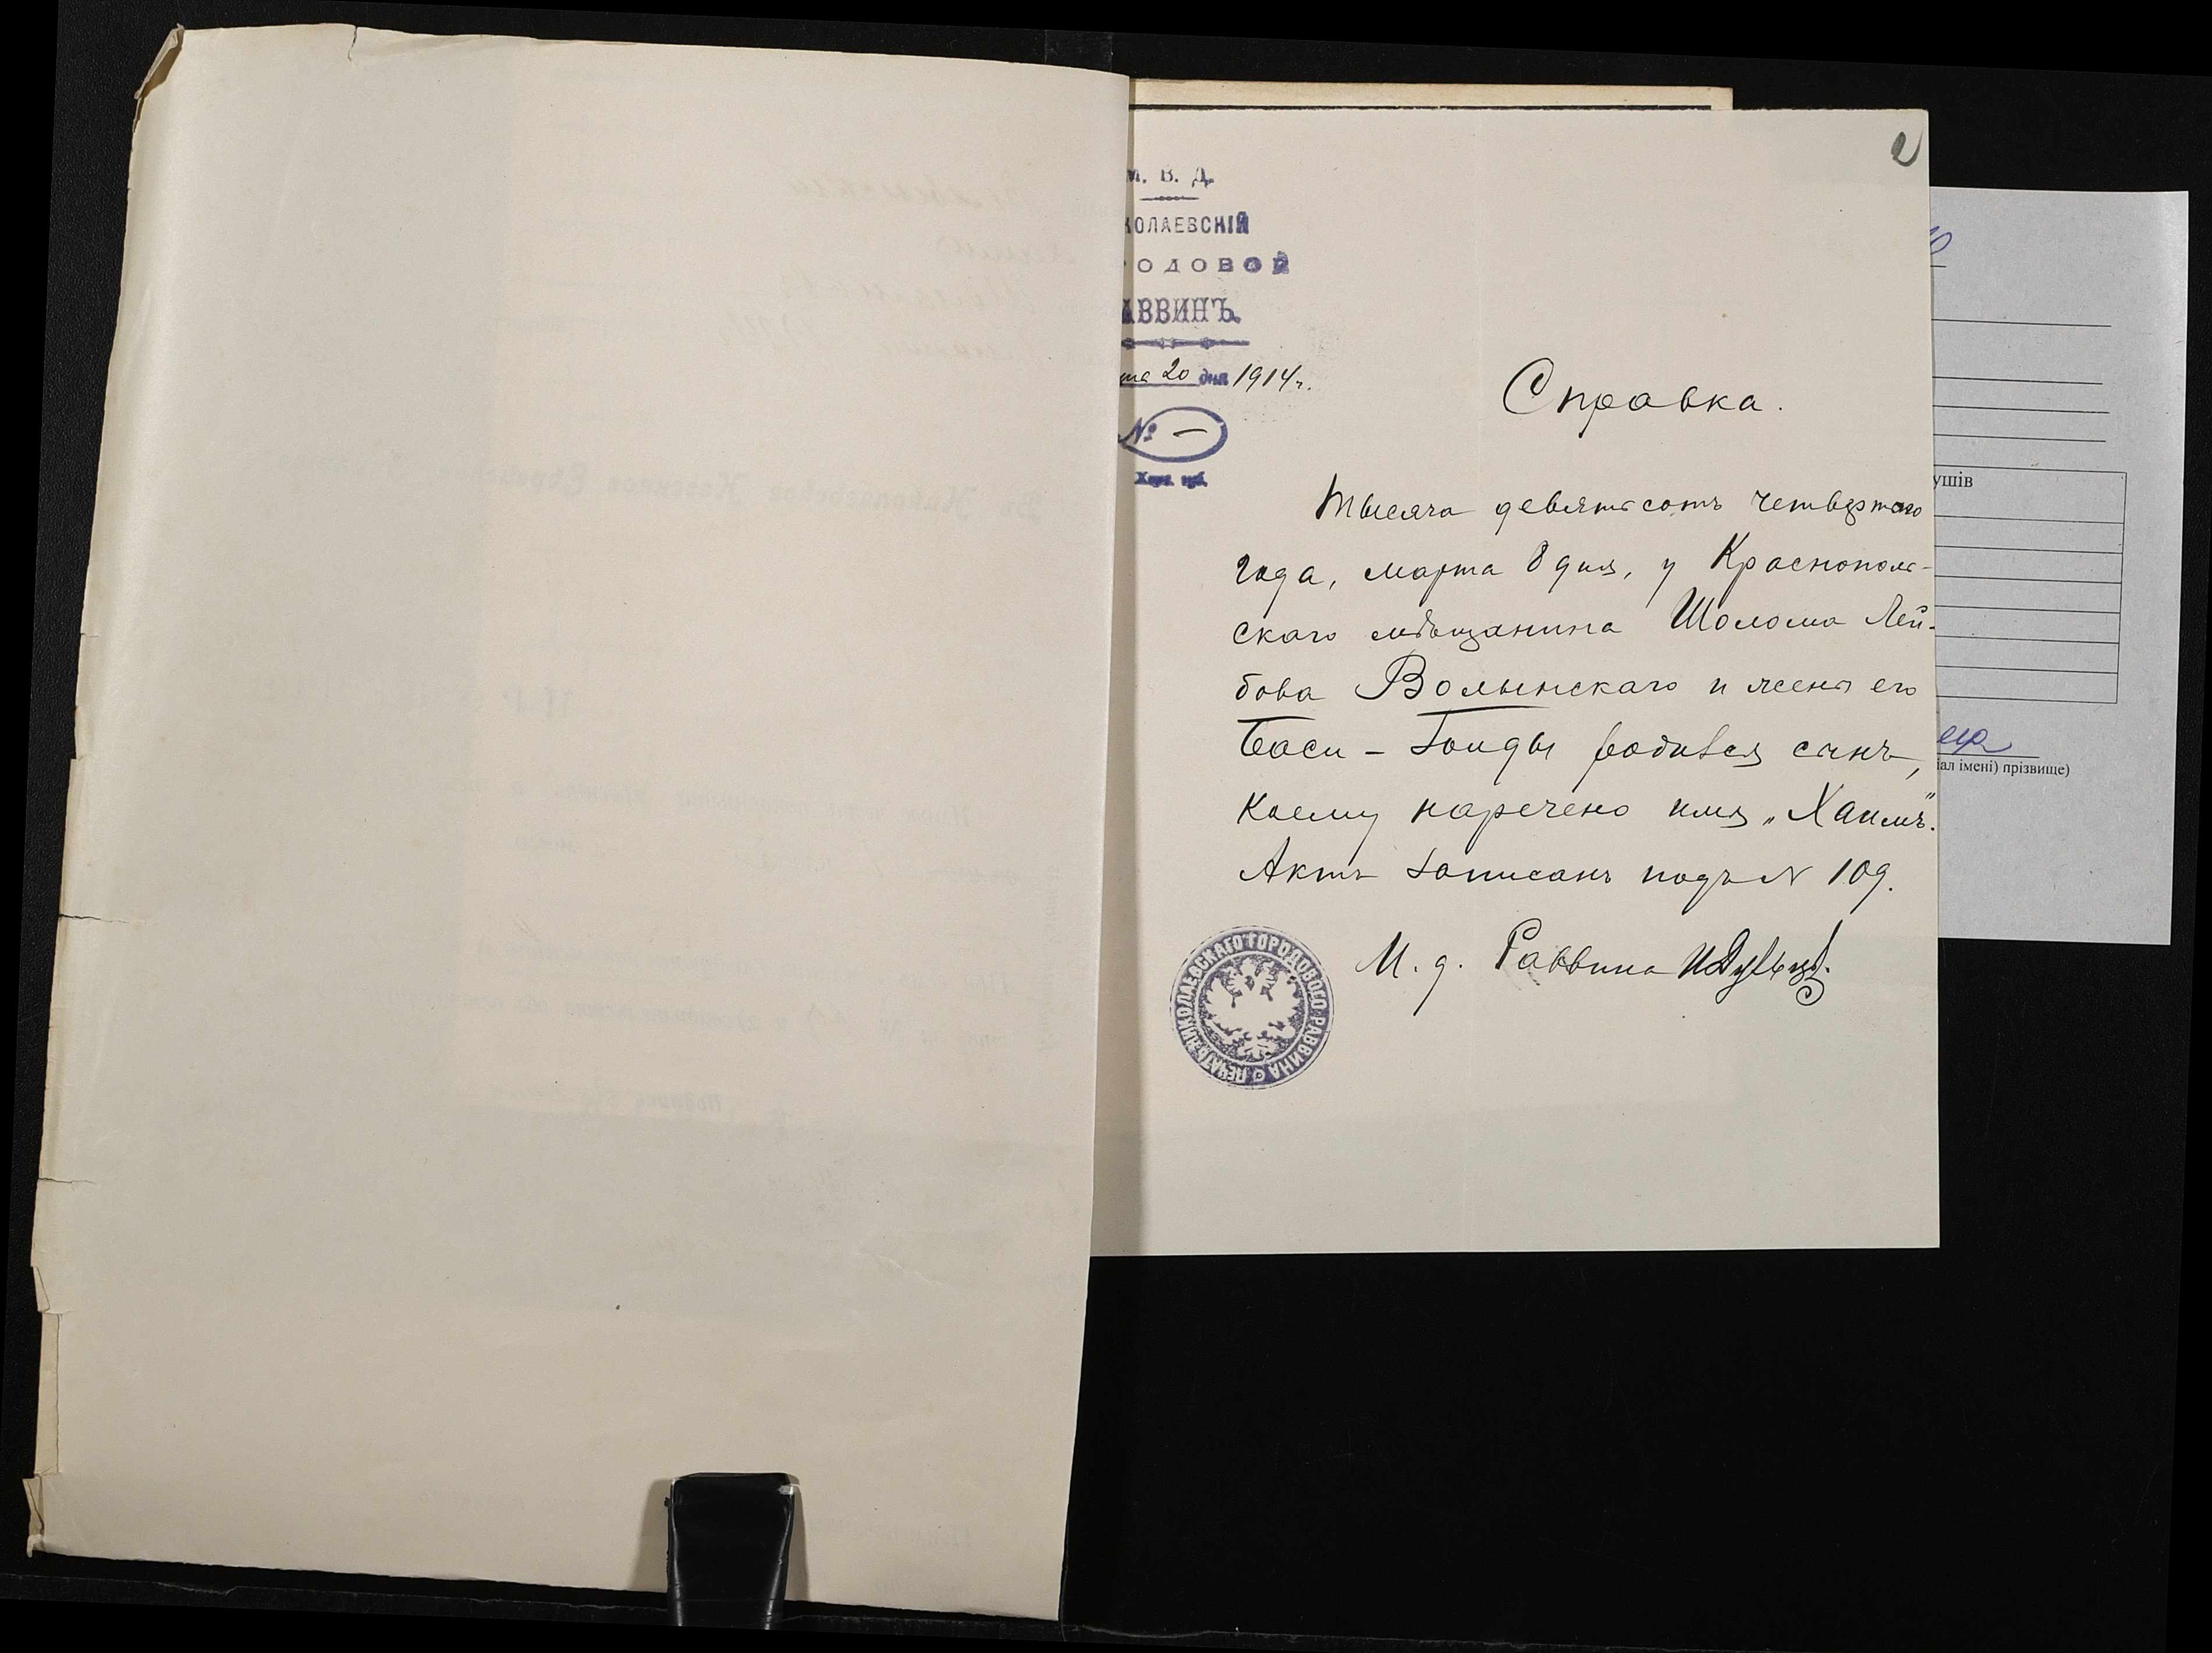 2
М. В. Д.
КОЛАЕВСКІЙ
РОДОВОЙ
АВВИНЪ.
та 20 дня 1914 г.
№ —
Херс. губ.
Справка.
Тысяча девятьсотъ четвертаго
года, марта 8 дня, у Краснополь-
скаго мѣщанина Шолома Лей-
бова Волынскаго и жены его
Баси - Зинды родился сынъ,
коему наречено имя „Хаимъ".
Актъ записанъ подъ N 109.
И. д. Раввина
ПЕЧАТЬ НИКОЛАЕВСКАГО ГОРОДОВОГО РАВВИНА
ушів
іал імені) прізвище)